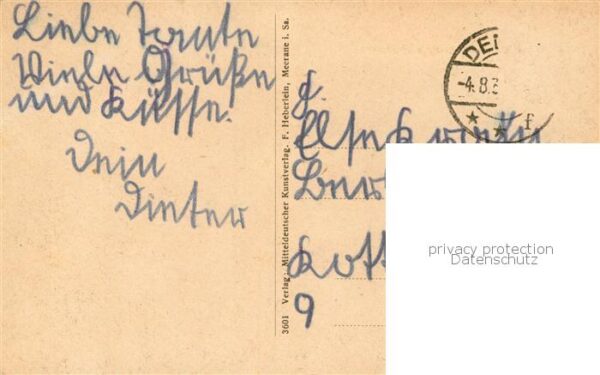 Liebe Tante
Viele Grüße
und Küsse.
Dein
Dieter
3601 Verlag: Mitteldeutscher Kunstverlag. F. Heberlein, Meerane i. Sa.
DEI
-4.8.3
* * f
Else
Ber
Kott
9
privacy protection
Datenschutz